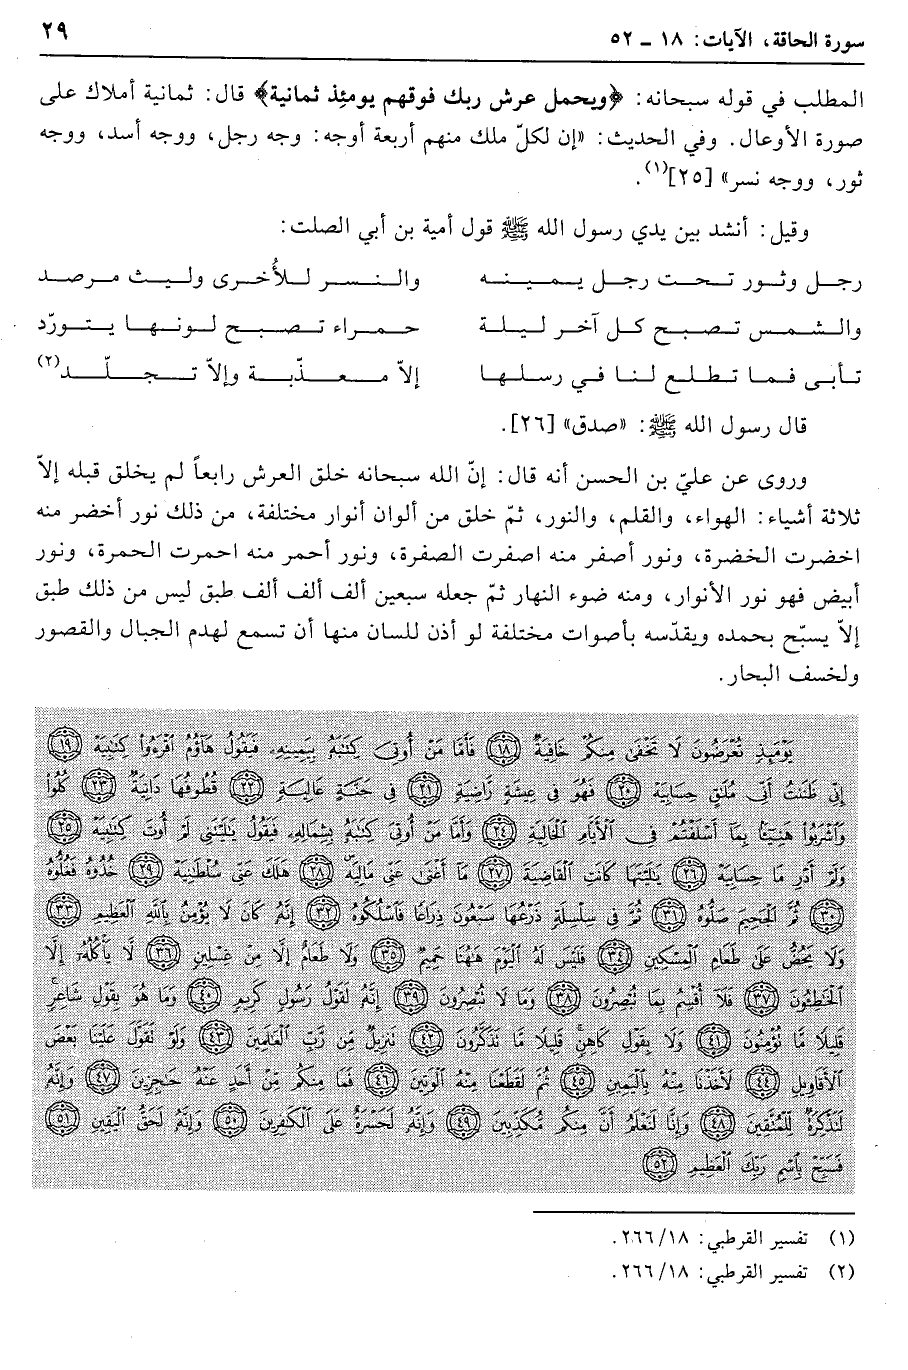 سورة الحاقة، الآيات: ١٨ ـ ٥٢ ٢٩
المطلب في قوله سبحانه: ﴿ويحمل عرش ربك فوقهم يومئذ ثمانية﴾ قال: ثمانية أملاك على
صورة الأوعال. وفي الحديث: «إن لكلّ ملك منهم أربعة أوجه: وجه رجل، ووجه أسد، ووجه
ثور، ووجه نسر» [٢٥](١).
وقيل: أنشد بين يدي رسول الله ﷺ قول أمية بن أبي الصلت:
رجل وثور تحت رجل يمينه والنسر للأُخرى وليث مرصد
والشمس تصبح كل آخر ليلة حمراء تصبح لونها يتورّد
تأبى فما تطلع لنا في رسلها إلاّ معذّبة وإلاّ تجلّد(٢)
قال رسول الله ﷺ: «صدق» [٢٦].
وروى عن عليّ بن الحسن أنه قال: إنّ الله سبحانه خلق العرش رابعاً لم يخلق قبله إلاّ
ثلاثة أشياء: الهواء، والقلم، والنور، ثمّ خلق من ألوان أنوار مختلفة، من ذلك نور أخضر منه
اخضرت الخضرة، ونور أصفر منه اصفرت الصفرة، ونور أحمر منه احمرت الحمرة، ونور
أبيض فهو نور الأنوار، ومنه ضوء النهار ثمّ جعله سبعين ألف ألف ألف طبق ليس من ذلك طبق
إلاّ يسبّح بحمده ويقدّسه بأصوات مختلفة لو أذن للسان منها أن تسمع لهدم الجبال والقصور
ولخسف البحار.
يَوْمَئِذٍ تُعْرَضُونَ لَا تَخْفَىٰ مِنكُمْ خَافِيَةٌ ١٨ فَأَمَّا مَنْ أُوتِىَ كِتَٰبَهُۥ بِيَمِينِهِۦ فَيَقُولُ هَآؤُمُ ٱقْرَءُوا۟ كِتَٰبِيَهْ ١٩
إِنِّى ظَنَنتُ أَنِّى مُلَٰقٍ حِسَابِيَهْ ٢٠ فَهُوَ فِى عِيشَةٍ رَّاضِيَةٍ ٢١ فِى جَنَّةٍ عَالِيَةٍ ٢٢ قُطُوفُهَا دَانِيَةٌ ٢٣ كُلُوا۟
وَٱشْرَبُوا۟ هَنِيٓـًٔۢا بِمَآ أَسْلَفْتُمْ فِى ٱلْأَيَّامِ ٱلْخَالِيَةِ ٢٤ وَأَمَّا مَنْ أُوتِىَ كِتَٰبَهُۥ بِشِمَالِهِۦ فَيَقُولُ يَٰلَيْتَنِى لَمْ أُوتَ كِتَٰبِيَهْ ٢٥
وَلَمْ أَدْرِ مَا حِسَابِيَهْ ٢٦ يَٰلَيْتَهَا كَانَتِ ٱلْقَاضِيَةَ ٢٧ مَآ أَغْنَىٰ عَنِّى مَالِيَهْ ٢٨ هَلَكَ عَنِّى سُلْطَٰنِيَهْ ٢٩ خُذُوهُ فَغُلُّوهُ
٣٠ ثُمَّ ٱلْجَحِيمَ صَلُّوهُ ٣١ ثُمَّ فِى سِلْسِلَةٍ ذَرْعُهَا سَبْعُونَ ذِرَاعًا فَٱسْلُكُوهُ ٣٢ إِنَّهُۥ كَانَ لَا يُؤْمِنُ بِٱللَّهِ ٱلْعَظِيمِ ٣٣
وَلَا يَحُضُّ عَلَىٰ طَعَامِ ٱلْمِسْكِينِ ٣٤ فَلَيْسَ لَهُ ٱلْيَوْمَ هَٰهُنَا حَمِيمٌ ٣٥ وَلَا طَعَامٌ إِلَّا مِنْ غِسْلِينٍ ٣٦ لَّا يَأْكُلُهُۥٓ إِلَّا
ٱلْخَٰطِـُٔونَ ٣٧ فَلَآ أُقْسِمُ بِمَا تُبْصِرُونَ ٣٨ وَمَا لَا تُبْصِرُونَ ٣٩ إِنَّهُۥ لَقَوْلُ رَسُولٍ كَرِيمٍ ٤٠ وَمَا هُوَ بِقَوْلِ شَاعِرٍ ۚ
قَلِيلًا مَّا تُؤْمِنُونَ ٤١ وَلَا بِقَوْلِ كَاهِنٍ ۚ قَلِيلًا مَّا تَذَكَّرُونَ ٤٢ تَنزِيلٌ مِّن رَّبِّ ٱلْعَٰلَمِينَ ٤٣ وَلَوْ تَقَوَّلَ عَلَيْنَا بَعْضَ
ٱلْأَقَاوِيلِ ٤٤ لَأَخَذْنَا مِنْهُ بِٱلْيَمِينِ ٤٥ ثُمَّ لَقَطَعْنَا مِنْهُ ٱلْوَتِينَ ٤٦ فَمَا مِنكُم مِّنْ أَحَدٍ عَنْهُ حَٰجِزِينَ ٤٧ وَإِنَّهُۥ
لَتَذْكِرَةٌ لِّلْمُتَّقِينَ ٤٨ وَإِنَّا لَنَعْلَمُ أَنَّ مِنكُم مُّكَذِّبِينَ ٤٩ وَإِنَّهُۥ لَحَسْرَةٌ عَلَى ٱلْكَٰفِرِينَ ٥٠ وَإِنَّهُۥ لَحَقُّ ٱلْيَقِينِ ٥١
فَسَبِّحْ بِٱسْمِ رَبِّكَ ٱلْعَظِيمِ ٥٢
(١) تفسير القرطبي: ١٨/ ٢٦٦.
(٢) تفسير القرطبي: ١٨/ ٢٦٦.